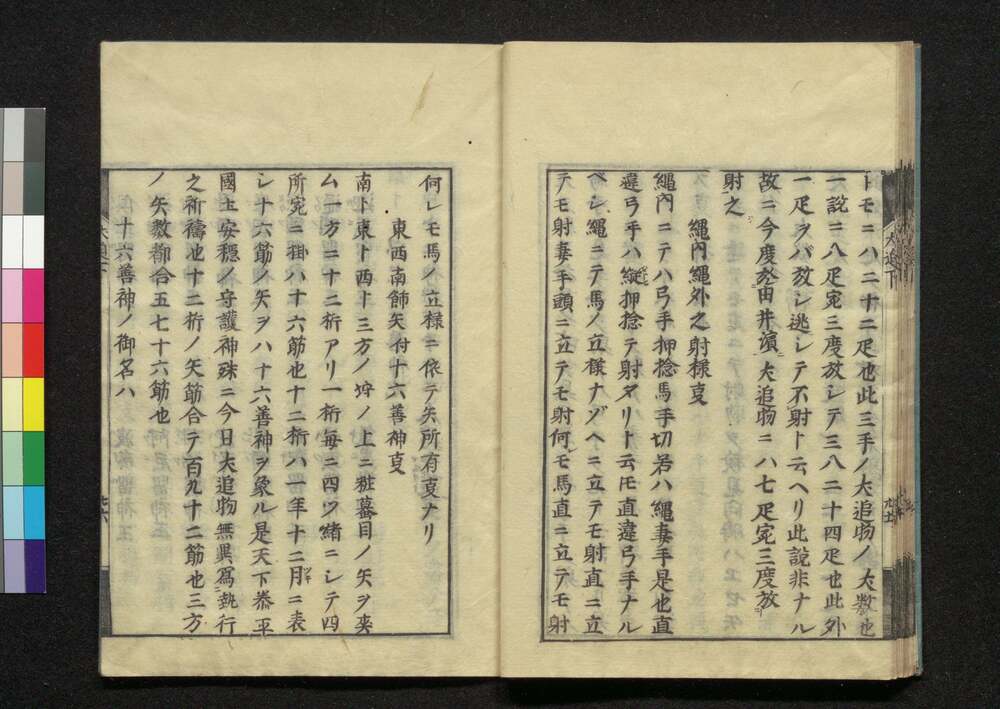 トモニハ二十二疋也此三手ノ犬追物ノ犬数也
一説ニハ八疋宛三度放シテ三八二十四疋也此外
一疋ヲバ放シ逃シテ不射ト云ヘリ此説非ナル
故ニ今度於由井濱犬追物ニハ七疋宛三度放
射之
繩内繩外之射様叓
繩内ニテハ弓手押捻馬手切若ハ繩妻手是也直
違弓手ハ縱押捻テ射タリト云𪜈直違弓手ナル
ベシ繩ニテ馬ノ立様ナゾヘニ立テモ射直ニ立
テモ射妻手頭ニ立テモ射何レモ馬直ニ立テモ射
何レモ馬ノ立様ニ依テ矢所有叓ナリ
東西南餝矢付十六善神叓
南ト東ト西ト三方ノ埒ノ上ニ粧蟇目ノ矢ヲ夾
ム一方ニ十二桁アリ一桁毎ニ四ツ緒ニシテ四
所宛ニ掛ハ十六筋也十二桁ハ一年十二月ニ表
シ十六筋ノ矢ヲハ十六善神ヲ象ル是天下泰平
國土安穏ノ守護神殊ニ今日犬追物無異爲執行
之祈禱也十二桁ノ矢筋合テ百九十二筋也三方
ノ矢数都合五七十六筋也
十六善神ノ御名ハ